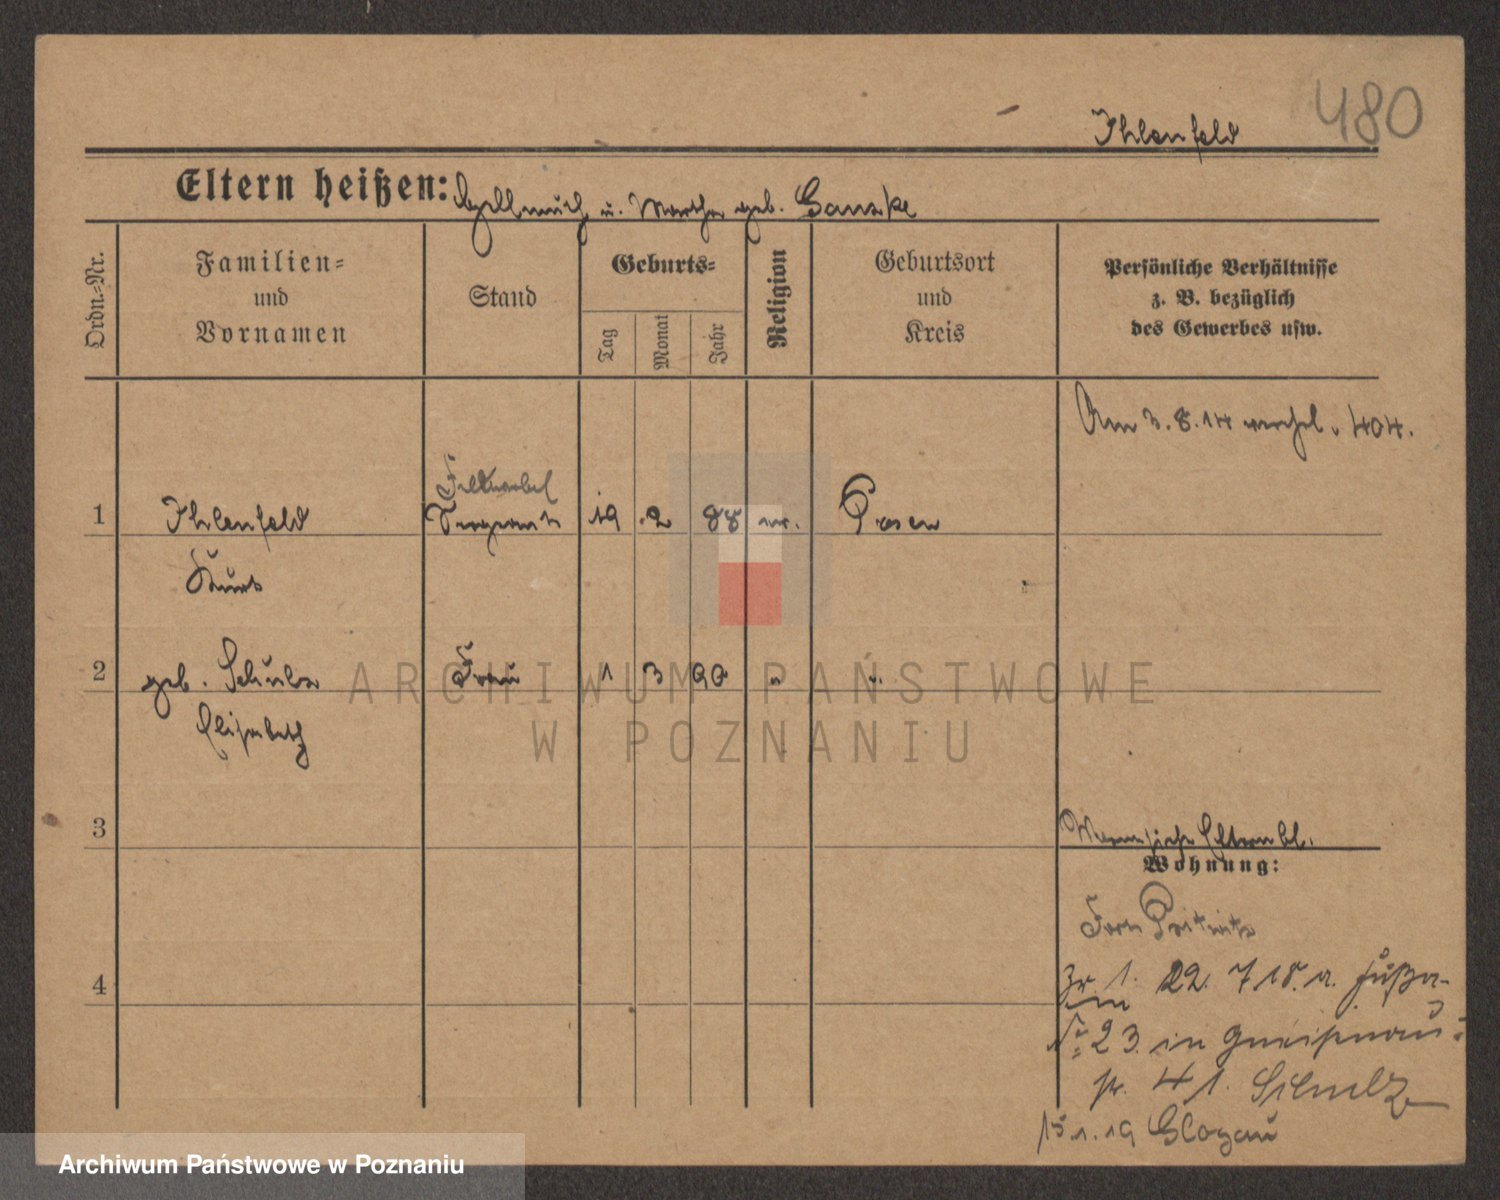 480
Ihlenfeld
Eltern heißen: Hellmuth u. Martha geb. Ganske
Ordn.-Nr.
Familien-
und
Vornamen
Stand
Geburts-
Tag
Monat
Jahr
Religion
Geburtsort
und
Kreis
Persönliche Verhältnisse
z. B. bezüglich
des Gewerbes usw.
Am 3.8.14 verehel. 404.
Feldwebel
1 Ihlenfeld Sergeant 19 2 88 ev. Posen
Kurt
2 geb. Frau 1 3 90 " "
Elisabeth
3
Wohnung:
Fort Prittwitz
1. 22. 7 18. a.
4
No 23 in Gneisenau-
str. 41.
15.1.19 Glogau
ARCHIWUM PAŃSTWOWE
W POZNANIU
Archiwum Państwowe w Poznaniu